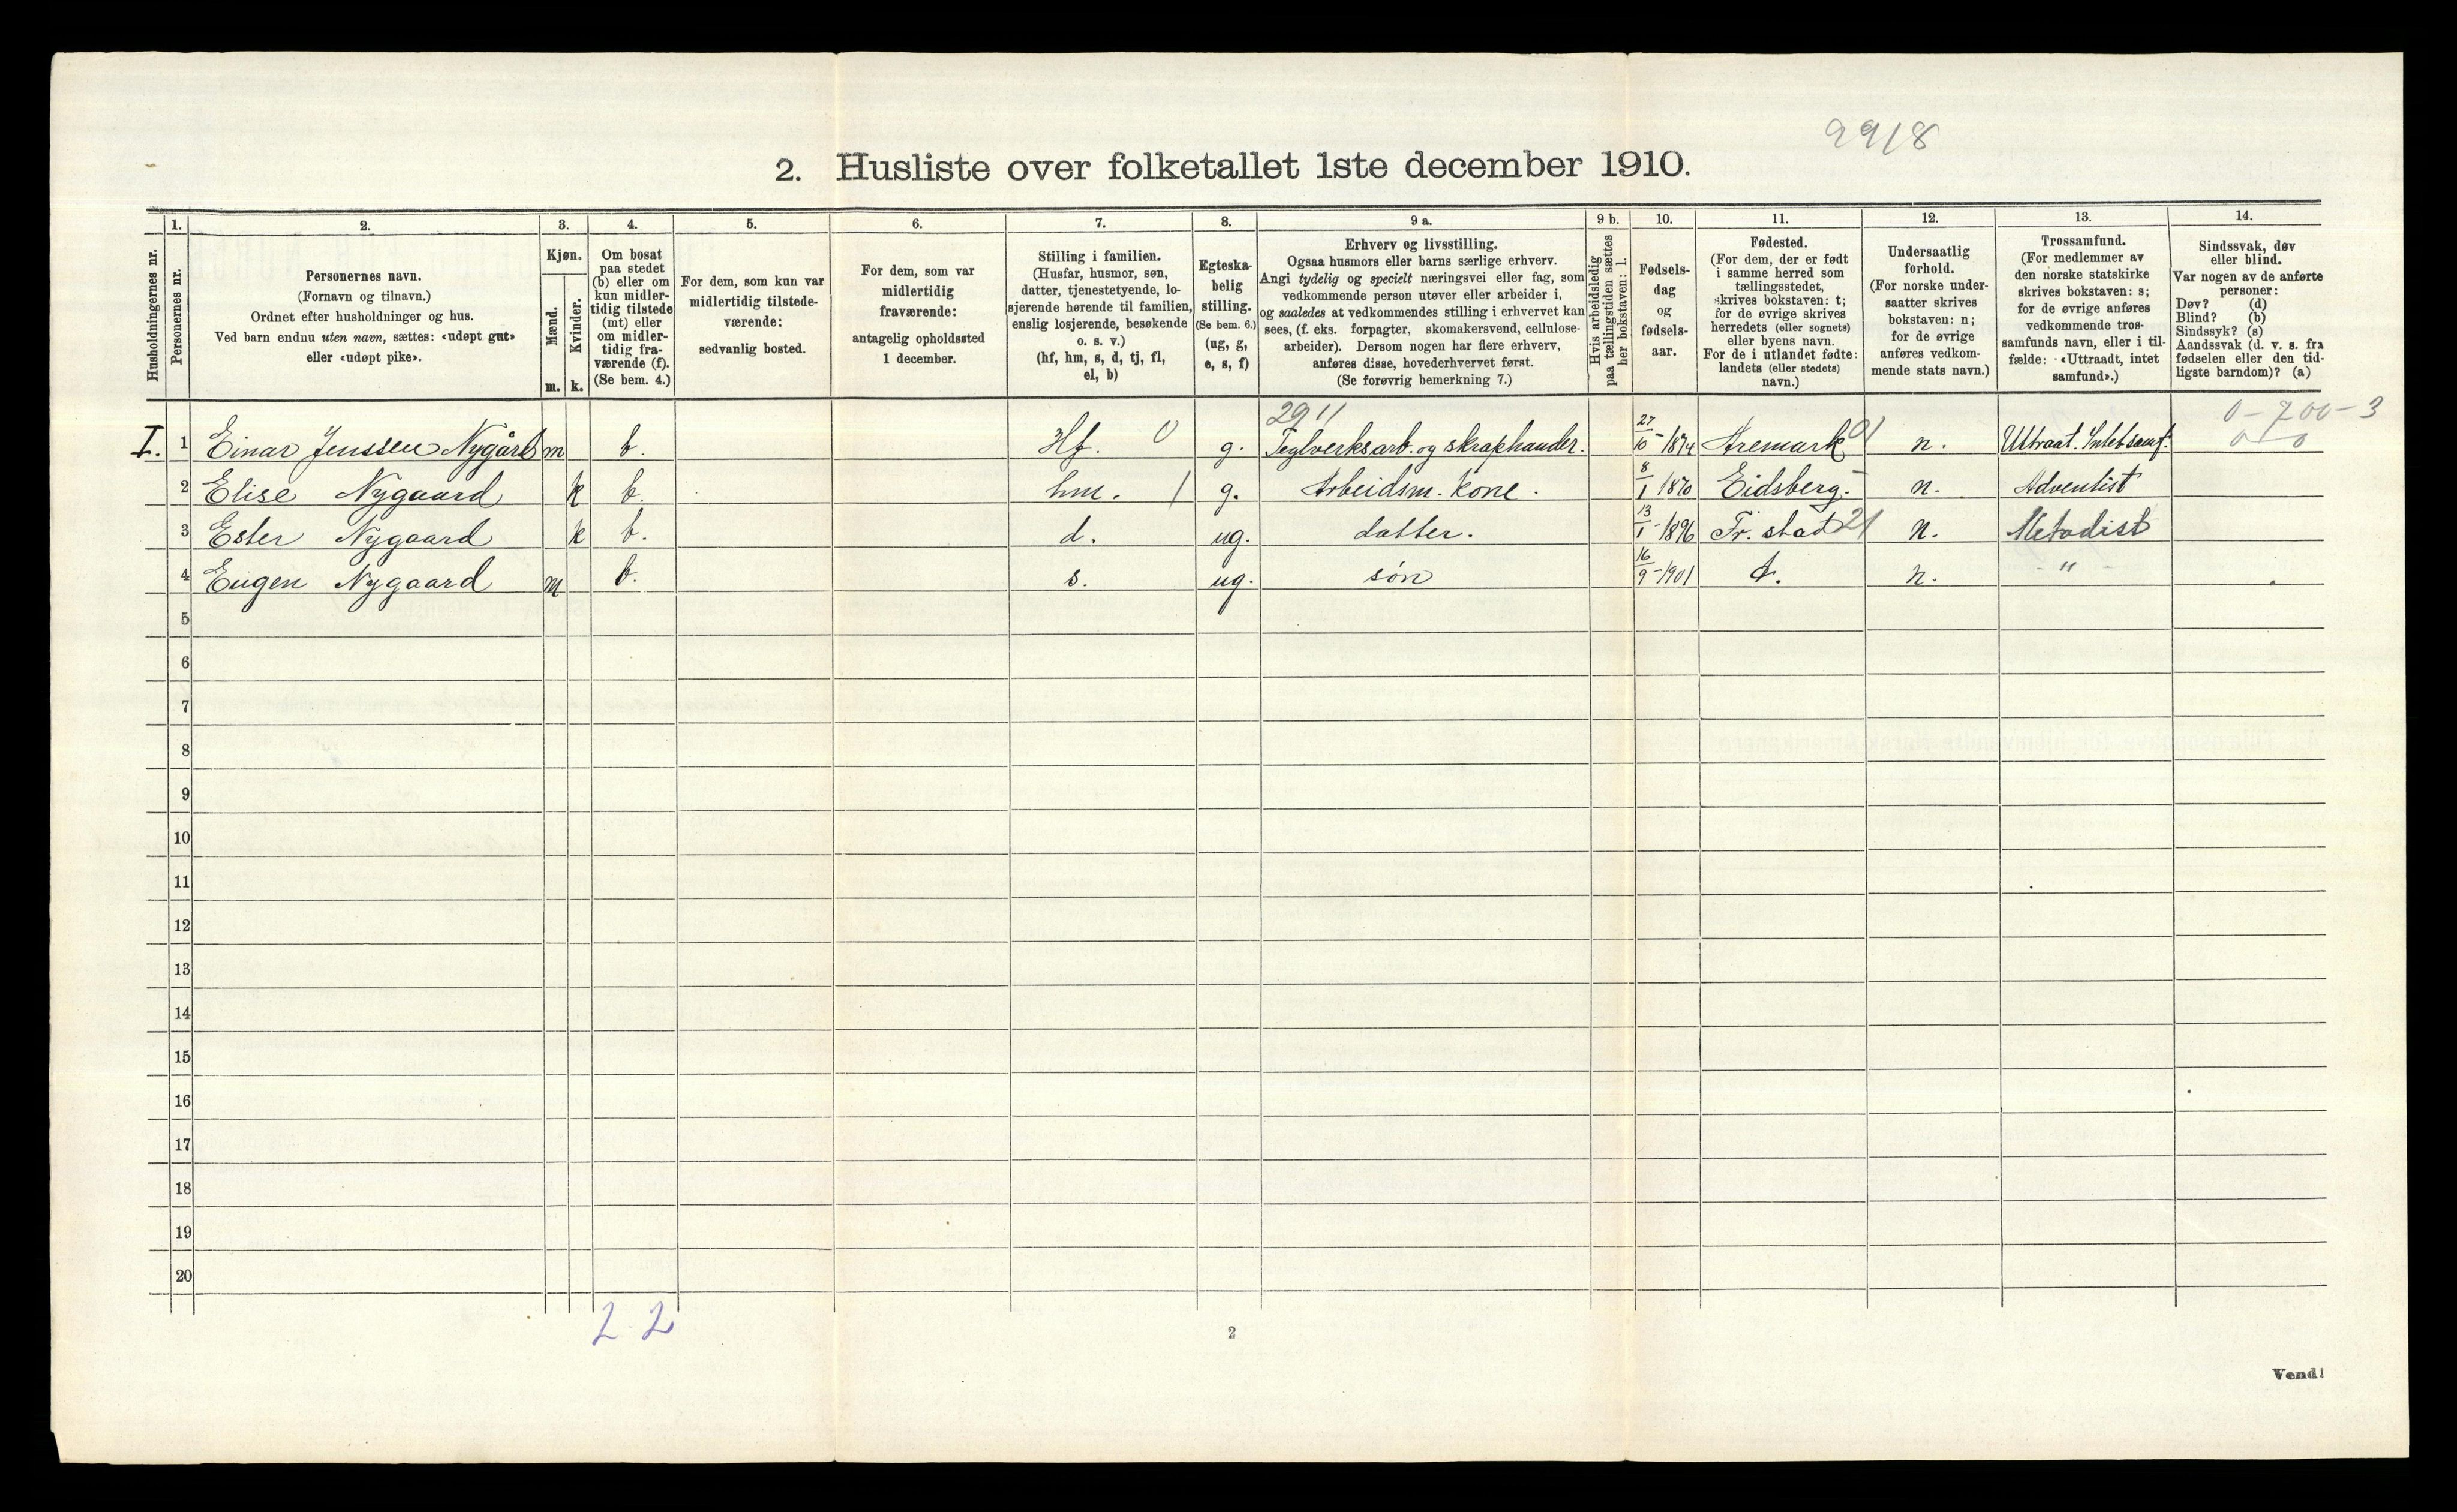 9918
2. Husliste over folketallet 1ste december 1910.
Husholdningernes nr.
1.
Personernes nr.
2.
Personernes navn.
(Fornavn og tilnavn.)
Ordnet efter husholdninger og hus.
Ved barn endnu uten navn, sættes: «udøpt gut»
eller «udøpt pike».
3.
Kjøn.
Mænd.
Kvinder.
m. k.
4.
Om bosat
paa stedet
(b) eller om
kun midler-
tidig tilstede
(mt) eller
om midler-
tidig fra-
værende (f).
(Se bem. 4.)
5.
For dem, som kun var
midlertidig tilstede-
værende:
sedvanlig bosted.
6.
For dem, som var
midlertidig
fraværende:
antagelig opholdssted
1 december.
7.
Stilling i familien.
(Husfar, husmor, søn,
datter, tjenestetyende, lo-
sjerende hørende til familien,
enslig losjerende, besøkende
o. s. v.)
(hf, hm, s, d, tj, fl,
el, b)
8.
Egteska-
belig
stilling.
(Se bem. 6.)
(ug, g,
e, s, f)
9 a.
Erhverv og livsstilling.
Ogsaa husmors eller barns særlige erhverv.
Angi tydelig og specielt næringsvei eller fag, som
vedkommende person utøver eller arbeider i,
og saaledes at vedkommendes stilling i erhvervet kan
sees, (f. eks. forpagter, skomakersvend, cellulose-
arbeider). Dersom nogen har flere erhverv,
anføres disse, hovederhvervet først.
(Se forøvrig bemerkning 7.)
9 b.
Hvis arbeidsledig
paa tællingstiden sættes
her bokstaven: l.
10.
Fødsels-
dag
og
fødsels-
aar.
11.
Fødested.
(For dem, der er født
i samme herred som
tællingsstedet,
skrives bokstaven: t;
for de øvrige skrives
herredets (eller sognets)
eller byens navn.
For de i utlandet fødte:
landets (eller stedets)
navn.)
12.
Undersaatlig
forhold.
(For norske under-
saatter skrives
bokstaven: n;
for de øvrige
anføres vedkom-
mende stats navn.)
13.
Trossamfund.
(For medlemmer av
den norske statskirke
skrives bokstaven: s;
for de øvrige anføres
vedkommende tros-
samfunds navn, eller i til-
fælde: «Uttraadt, intet
samfund».)
14.
Sindssvak, døv
eller blind.
Var nogen av de anførte
personer:
Døv? (d)
Blind? (b)
Sindssyk? (s)
Aandssvak (d. v. s. fra
fødselen eller den tid-
ligste barndom)? (a)
2911 0-700-3
I. 1 Einar Jenssen Nygård m b. Hf. 0 g. Teglverksarb. og skraphandler. 27/10-1874 Aremark 01 n. Uttraat. Intet samf. 0-0
2 Elise Nygaard k b. hm. 1 g. Arbeidsm. kone. 8/1 1870 Eidsberg. - n. Adventist
3 Ester Nygaard k b. d. ug. datter. 13/1-1896 Fr. stad 21 n. Metodist
4 Eugen Nygaard m b. s. ug. søn 16/9-1901 t. n. - " -
5
6
7
8
9
10
11
12
13
14
15
16
17
18
19
20
2 2
2
Vend!